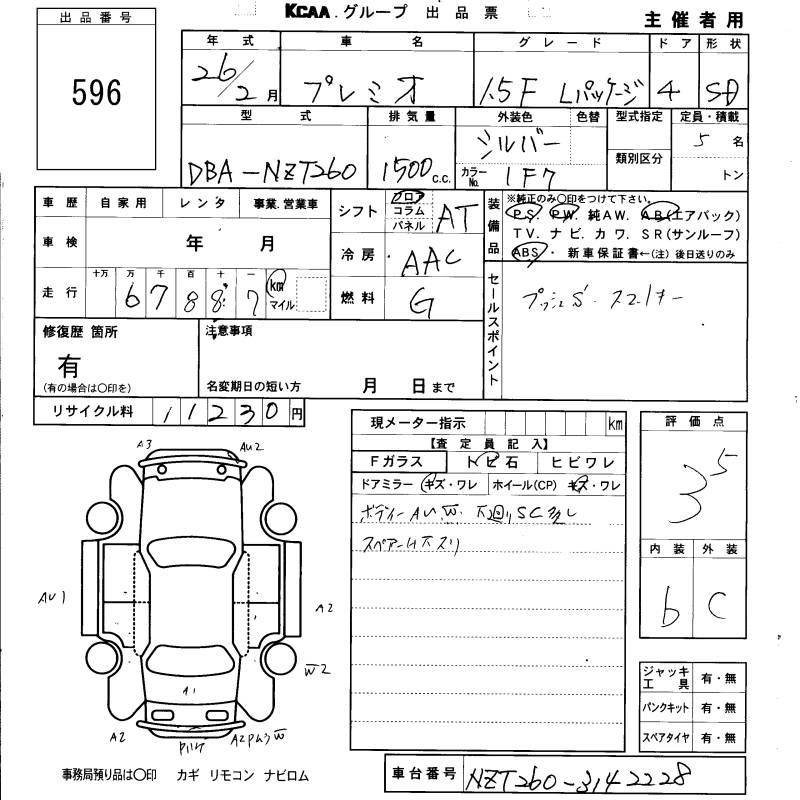 出品番号
KCAA.グループ 出品票
主催者用
596
年式 車名 グレード ドア 形状
26/2月 プレミオ 1.5F Lパッケージ 4 SD
型式 排気量 外装色 色替 型式指定 定員・積載
シルバー 5名
DBA-NZT260 1500c.c. カラーNo. 1F7 類別区分 トン
車歴 自家用 レンタ 事業.営業車
シフト フロア コラム パネル AT
装備品 ※純正のみ〇印をつけて下さい。
P.S. P.W. 純A.W. A.B(エアバック)
T.V. ナビ. カワ. S.R(サンルーフ)
ABS・ 新車保証書←(注)後日送りのみ
車検 年 月
冷房 AAC
走行 十万 万 千 百 十 一 km マイル
6 7 8 8 7
燃料 G
セールスポイント
プッシュS・スマートキー
修復歴 箇所
有
(有の場合は〇印を)
注意事項
名変期日の短い方 月 日まで
リサイクル料 11230円
現メーター指示 km
【査定員記入】
Fガラス トビ石 ヒビワレ
ドアミラー キズ・ワレ ホイール(CP) キズ・ワレ
ボディーAU W. 下廻りSC多し
評価点
3 5
内装 外装
b C
A3
AU2
AU1
A2
W2
A1
A2
A2PM3W
ジャッキ工具 有・無
パンクキット 有・無
スペアタイヤ 有・無
事務局預り品は〇印 カギ リモコン ナビロム
車台番号 NZT260-3142228